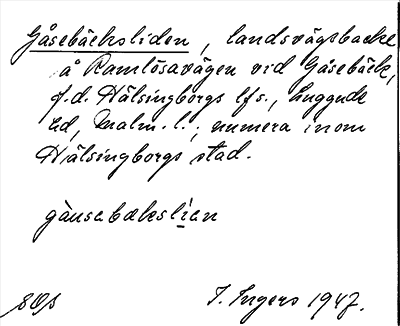 Gåsebäcksliden, landsvägsbacke
å Ramlösavägen vid Gåsebäck,
f.d. Hälsingborgs lfs., Luggude
hd, Malm. l.; numera inom
Hälsingborgs stad.
gåusabækslian
I. Ingers 1947.